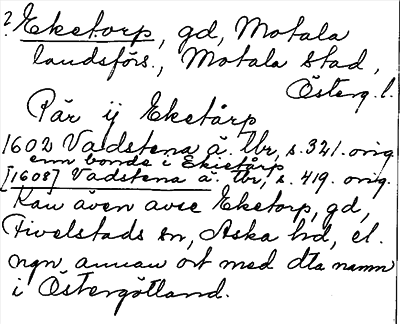 ? Eketorp, gd, Motala
landsförs., Motala stad,
Österg. l.
Pär ij Eketårp
1602 Vadstena ä. tbr, s. 321. orig
enn bonde i Ekietårp
[1608] Vadstena ä. tbr, s. 419. orig.
Kan även avse Eketorp, gd,
Fivelstads sn, Aska hd, el.
ngn annan ort med dta namn
i Östergötland.